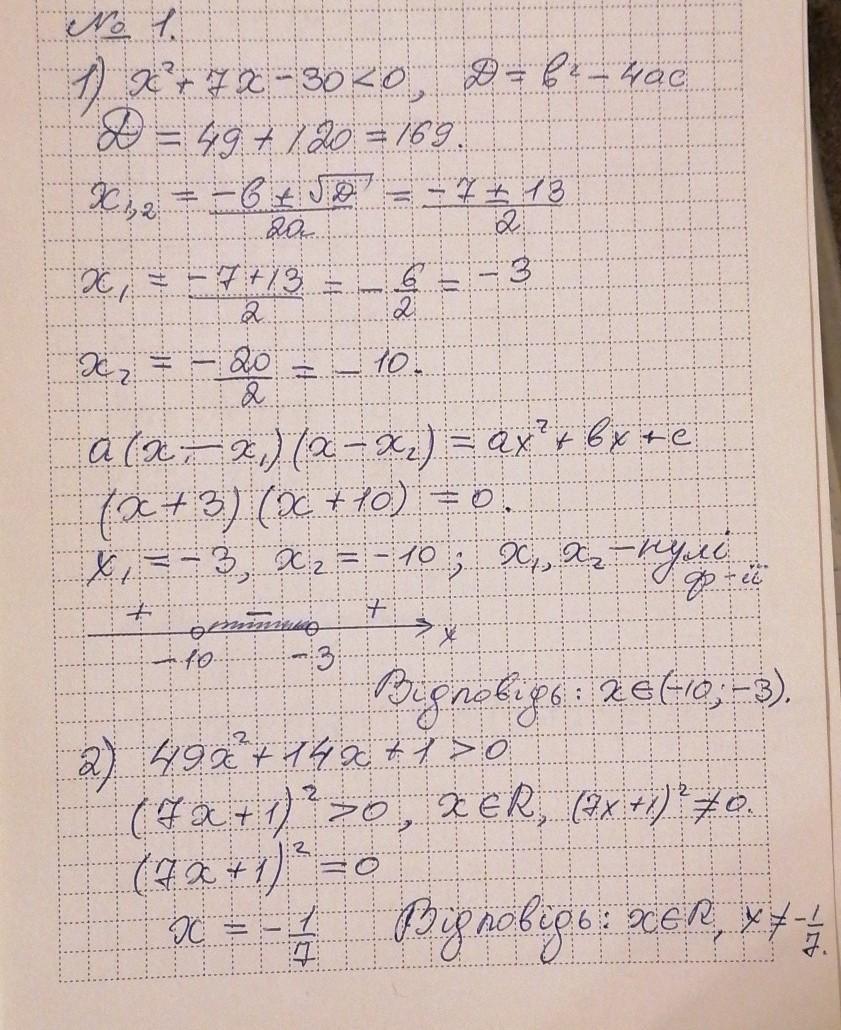 № 1.
1) x² + 7x - 30 < 0, D = b² - 4ac
D = 49 + 120 = 169.
x₁,₂ = (-b ± √D)/2a = (-7 ± 13)/2
x₁ = (-7 + 13)/2 = -6/2 = -3
x₂ = -20/2 = -10.
a(x - x₁)(x - x₂) = ax² + bx + c
(x + 3)(x + 10) = 0.
x₁ = -3, x₂ = -10; x₁, x₂ - нулі ф-ії
+ - + x
-10 -3
Відповідь: x ∈ (-10; -3).
2) 49x² + 14x + 1 > 0
(7x + 1)² > 0, x ∈ R, (7x + 1)² ≠ 0.
(7x + 1)² = 0
x = -1/7 Відповідь: x ∈ R, x ≠ -1/7.